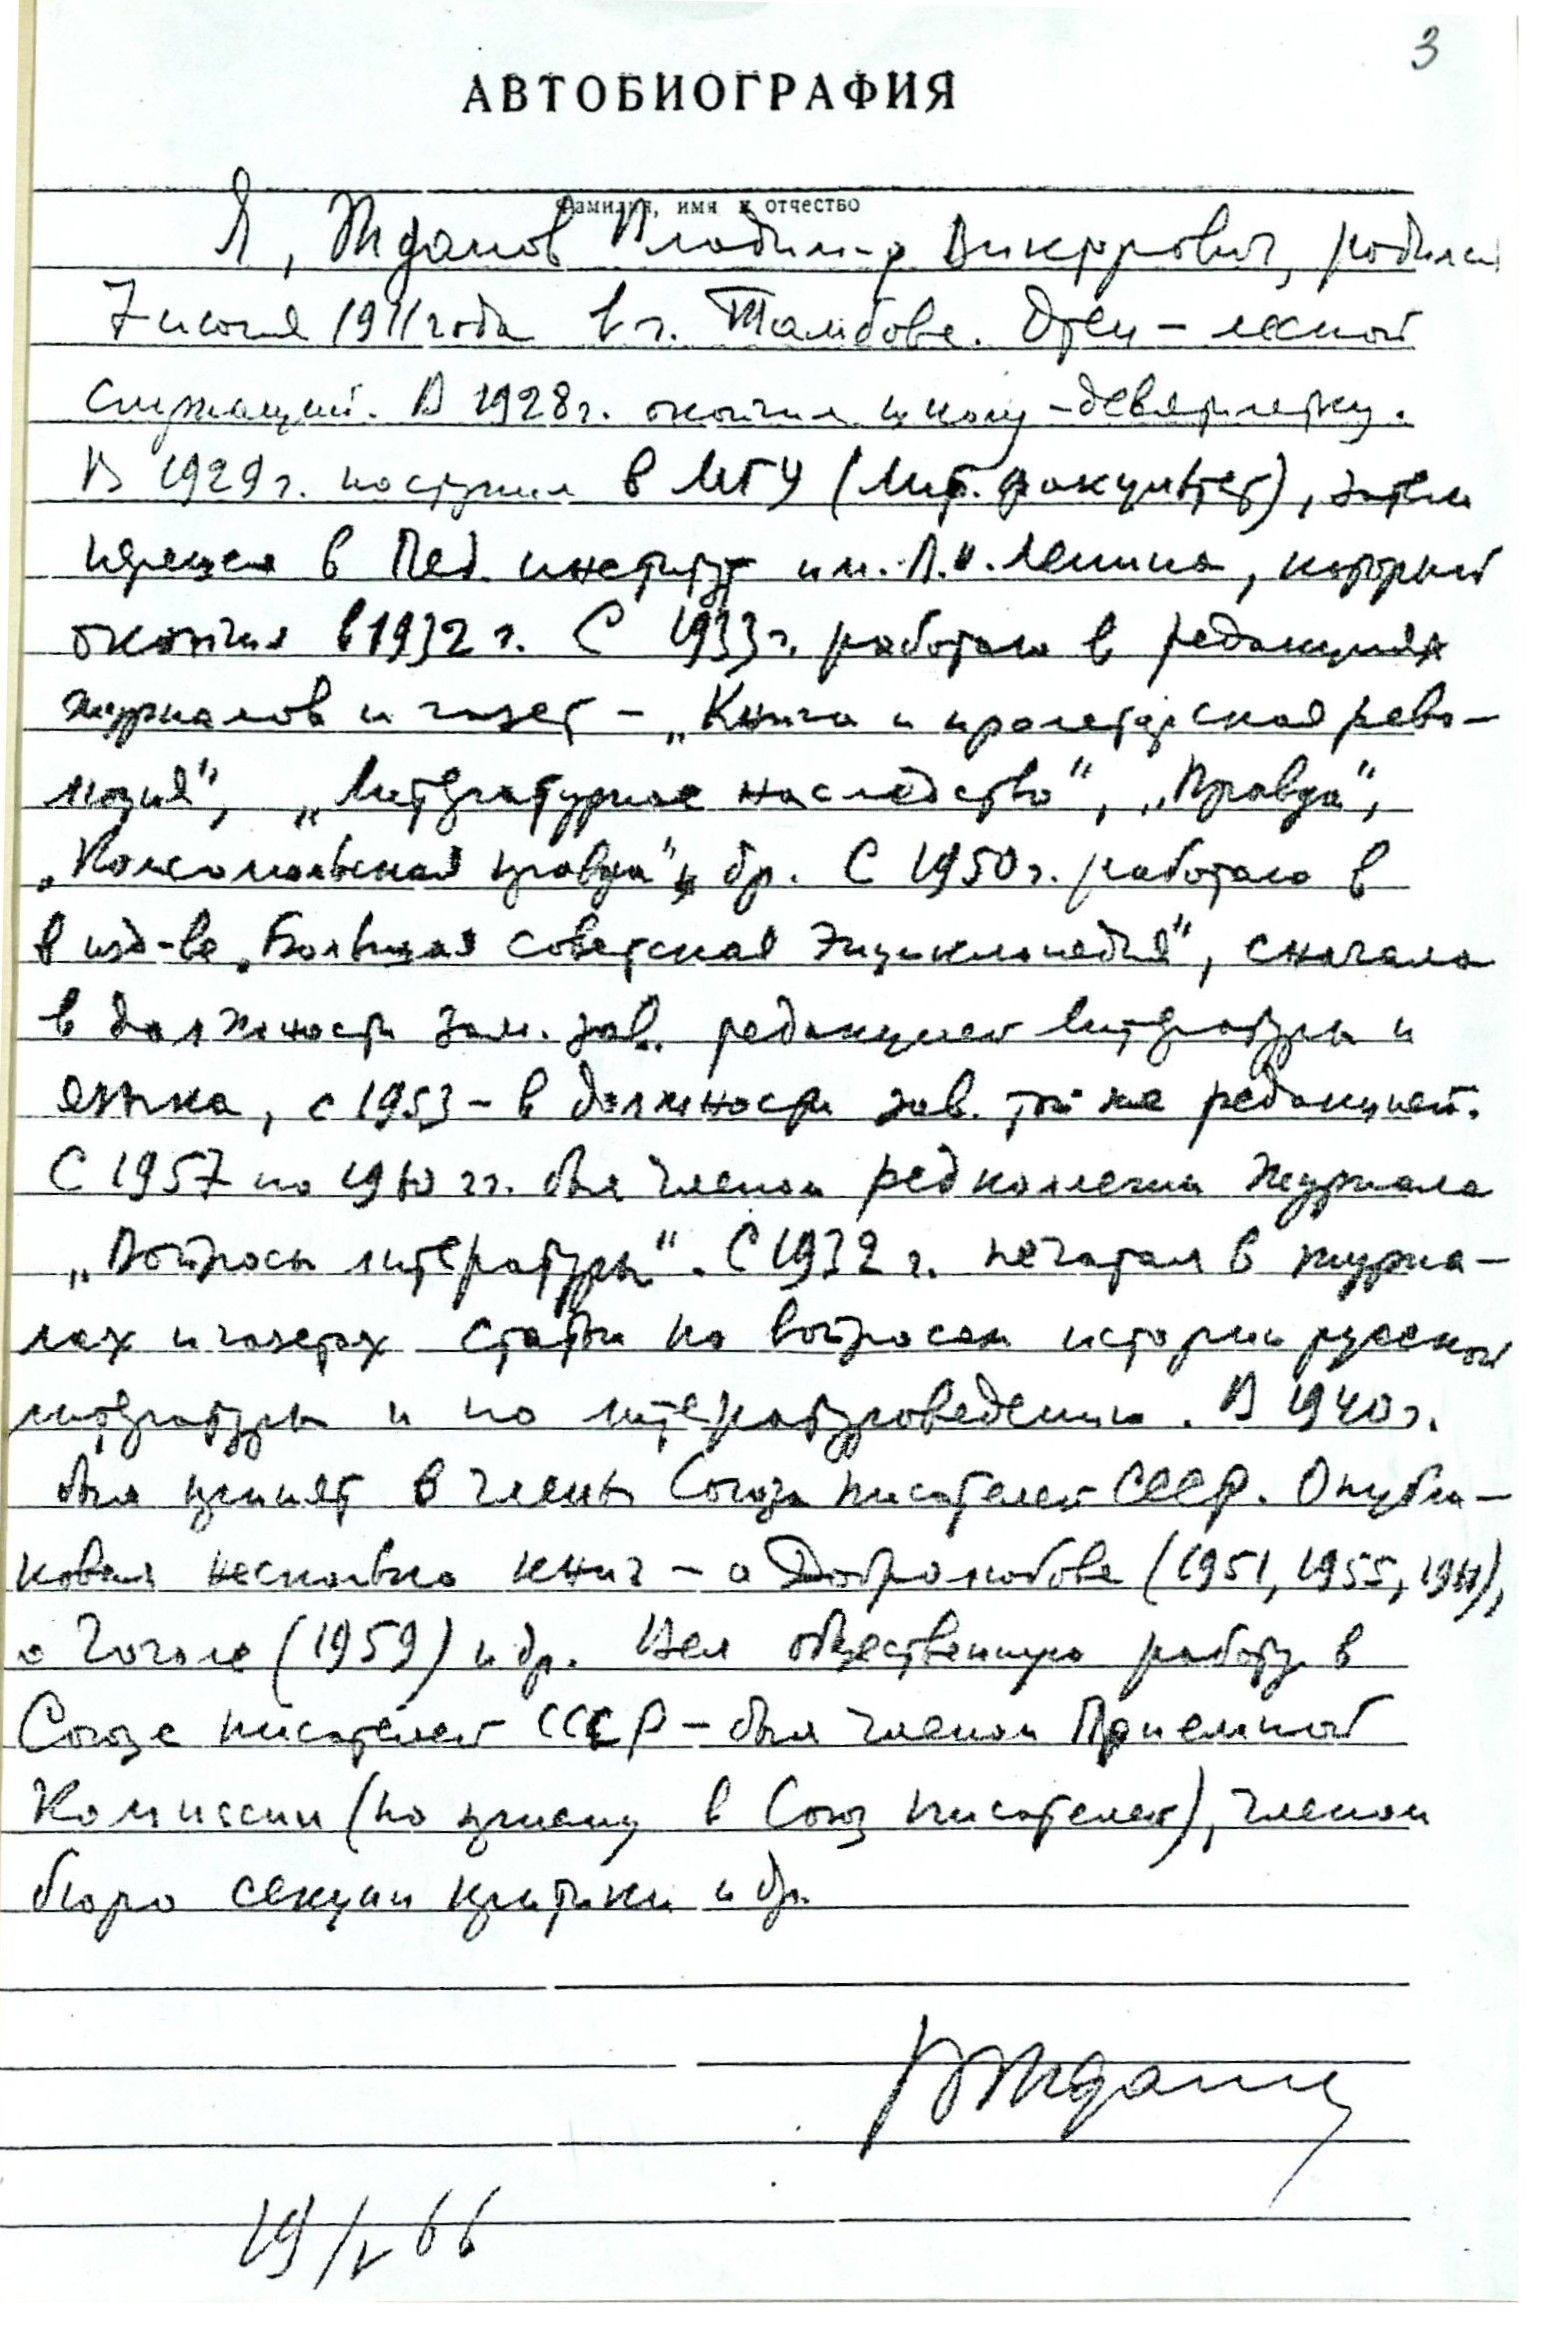 3
АВТОБИОГРАФИЯ
фамилия, имя и отчество
Я, Жданов Владимир Викторович, родился
7 июля 1911 года в г. Тамбове. Отец – лесной
служащий. В 1928 г. окончил школу-девятилетку.
В 1929 г. поступил в МГУ (Лит. факультет), затем
перешел в Пед. институт им. В.И. Ленина, который
окончил в 1932 г. С 1933 г. работал в редакциях
журналов и газет – „Книга и пролетарская рево-
люция", „Литературное наследство", „Правда",
„Комсомольская правда" и др. С 1950 г. работаю в
в изд-ве „Большая советская Энциклопедия", сначала
в должности зам. зав. редакцией литературы и
языка, с 1953 – в должности зав. той же редакцией.
С 1957 по 1960 гг. был членом редколлегии журнала
„Вопросы литературы". С 1932 г. печатал в журна-
лах и газетах статьи по вопросам истории русской
литературы и по литературоведению. В 1940 г.
был принят в члены Союза писателей СССР. Опубли-
ковал несколько книг – о Добролюбове (1951, 1955, 1961),
о Гоголе (1959) и др. Вел общественную работу в
Союзе писателей СССР – был членом Приемной
Комиссии (по приему в Союз писателей), членом
бюро секции критики и др.
В Жданов
19/V 66